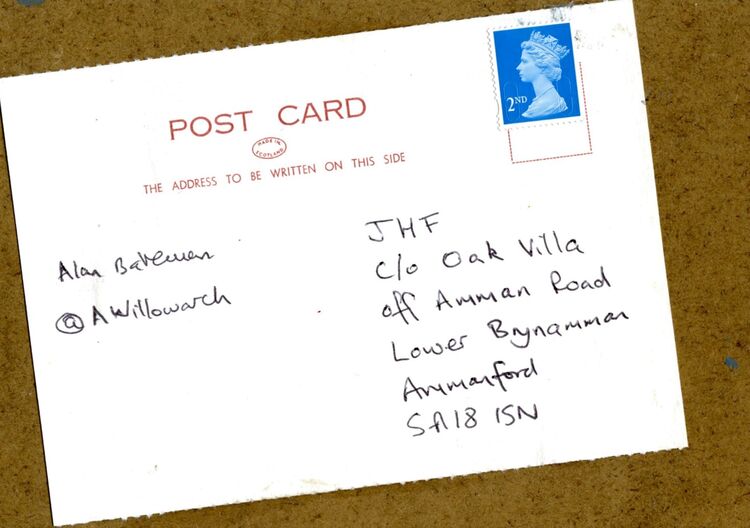 POST CARD
MADE IN
SCOTLAND
THE ADDRESS TO BE WRITTEN ON THIS SIDE
2ND
Alan Bateman
@AWillowarch
JHF
c/o Oak Villa
off Amman Road
Lower Brynamman
Ammanford
SA18 1SN